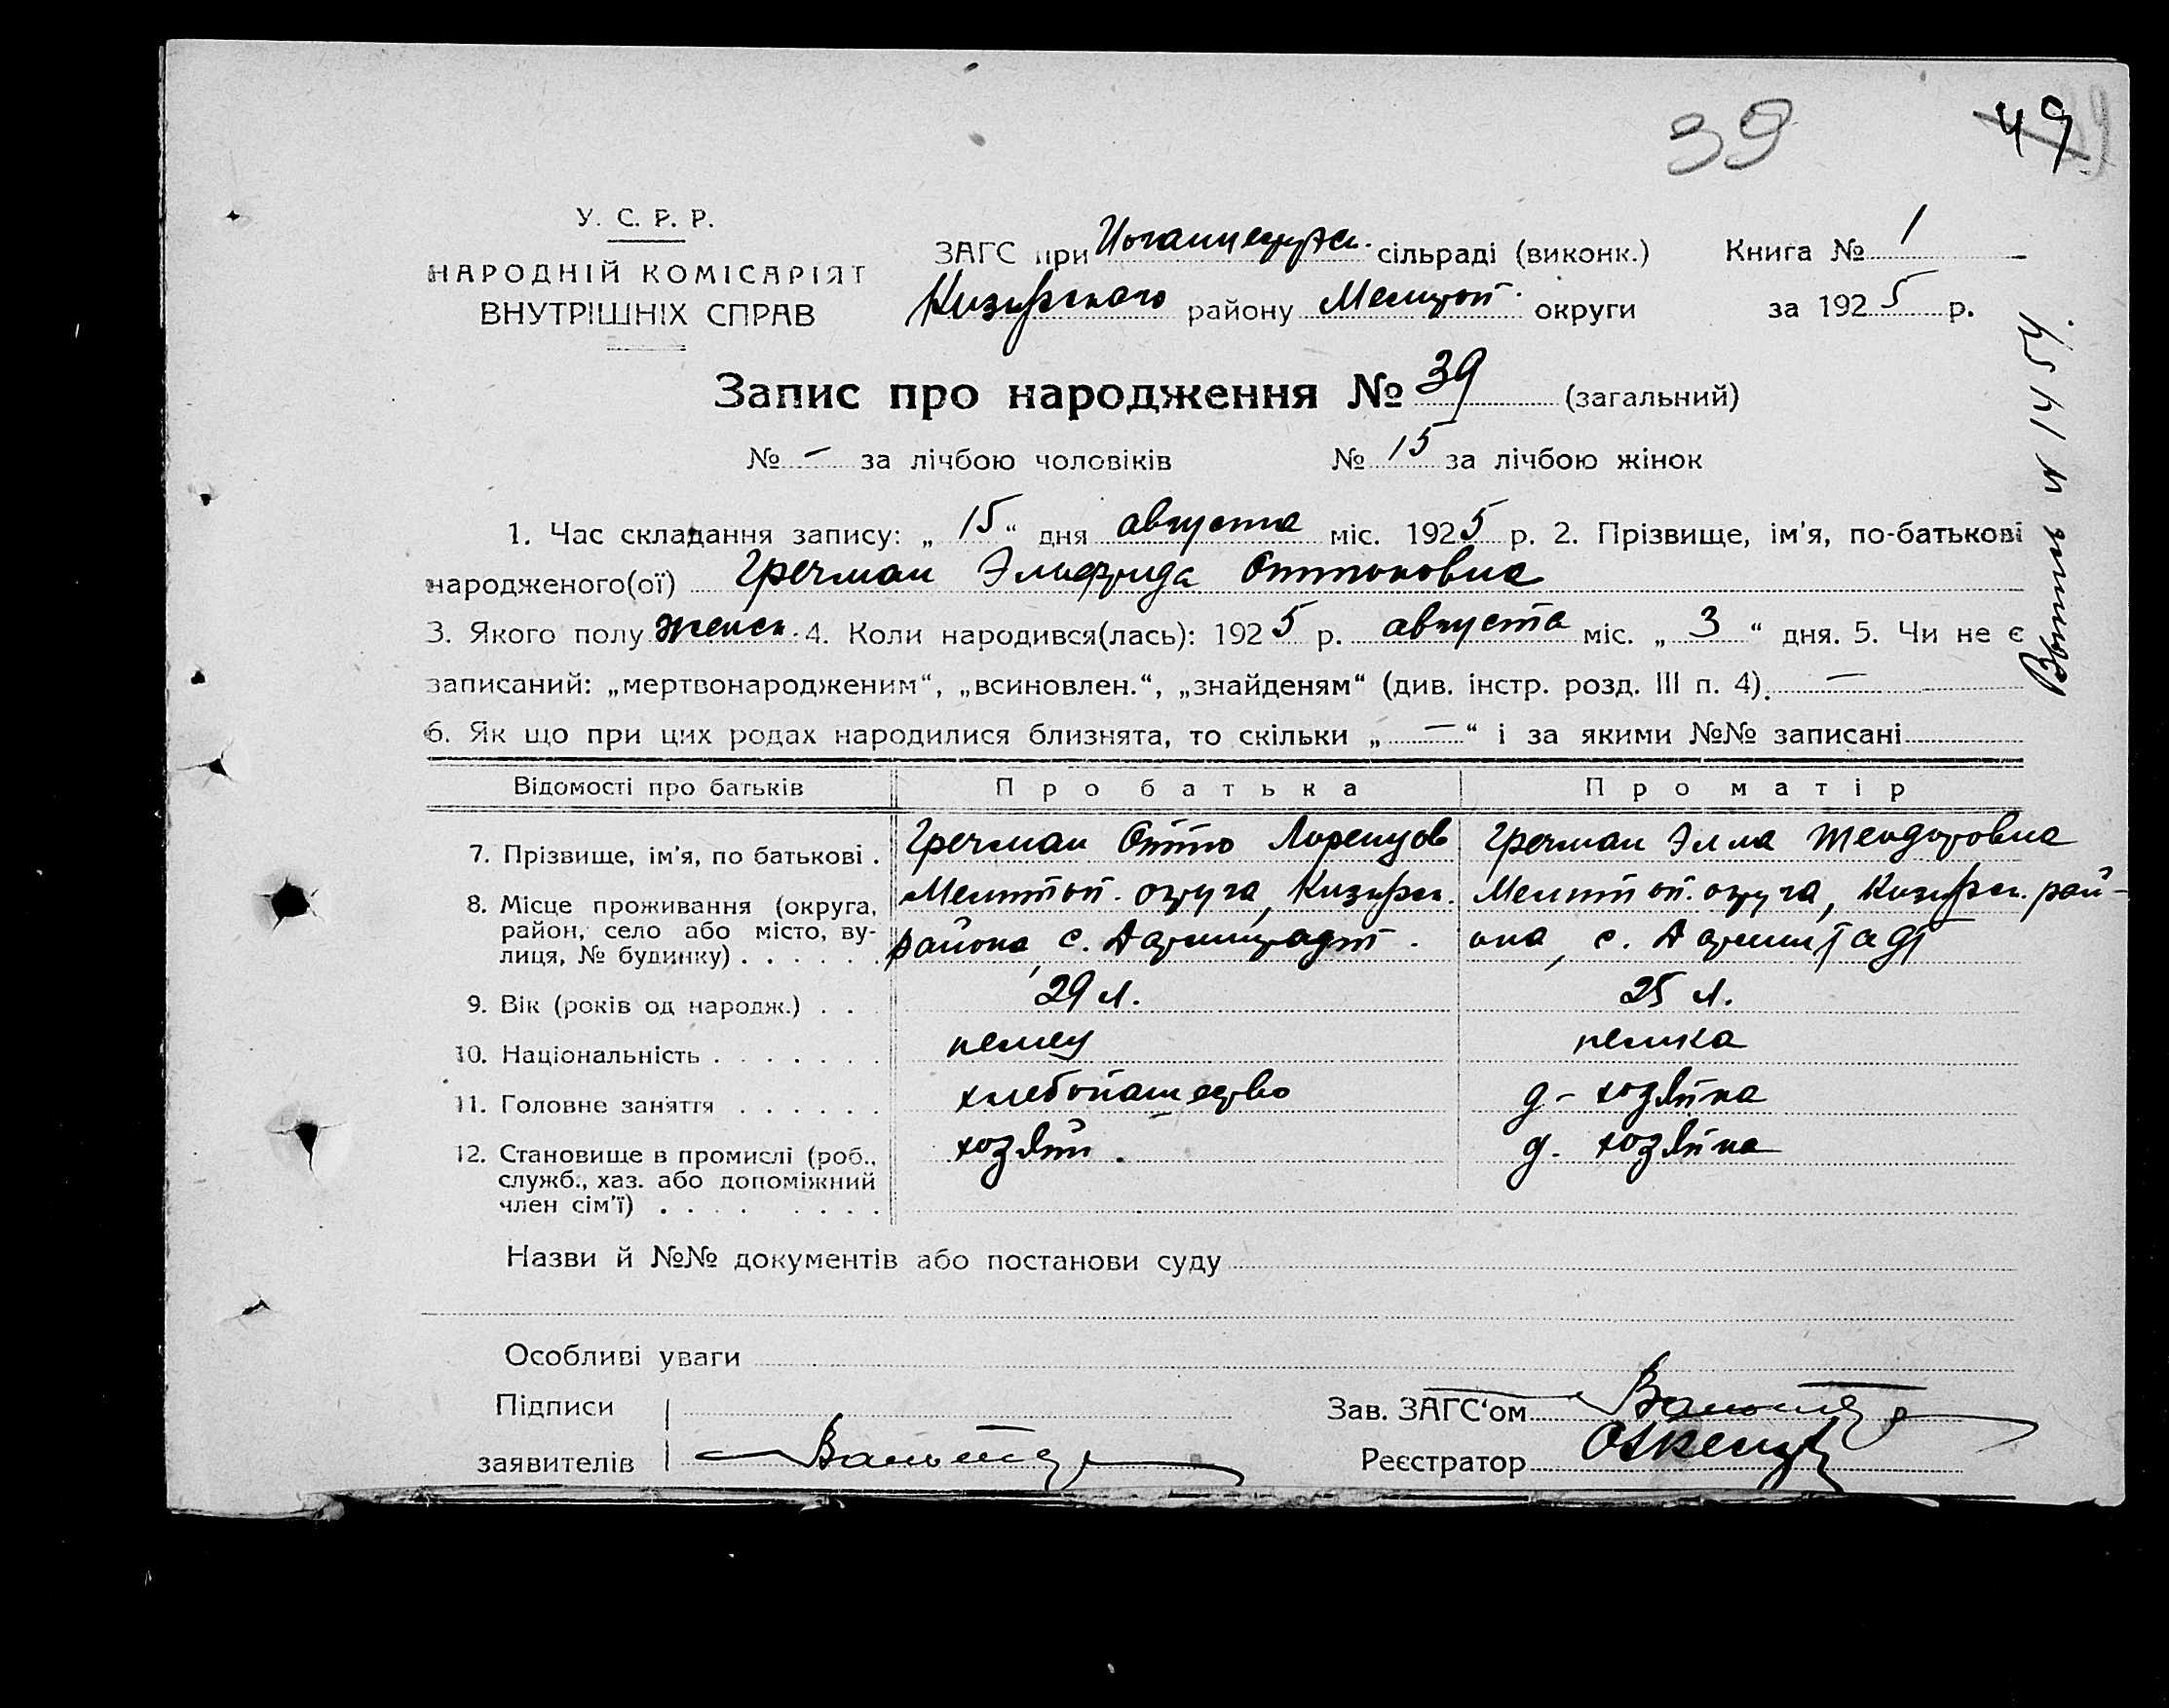 39
49
У. С. Р. Р.
НАРОДНІЙ КОМІСАРІЯТ
ВНУТРІШНІХ СПРАВ
ЗАГС при сільраді (виконк.) Книга № 1
района Мелитоп. округи за 1925 р.
Запис про народження № 39 (загальний)
№ — за лічбою чоловіків № 15 за лічбою жінок
1. Час складання запису: „ 15 “ дня августа міс. 1925 р. 2. Прізвище, ім'я, по-батькові
народженого(ої) Гречман Эльфрида Оттоновна
3. Якого полу женск. 4. Коли народився(лась): 1925 р. августа міс. „ 3 “ дня. 5. Чи не є
записаний: „мертвонародженим“, „всиновлен.“, „знайденям“ (див. інстр. розд. III п. 4). —
6. Як що при цих родах народилися близнята, то скільки „ — “ і за якими №№ записані
Відомості про батьків Про батька Про матір
7. Прізвище, ім'я, по батькові . Гречман Отто Лоренцов Гречман Элла Теодоровна
8. Місце проживання (округа, Мелитоп. округа, Мелитоп. округа, рай-
район, село або місто, ву- района, с. Дармштадт. она, с. Дармштадт
лиця, № будинку) . . . . . .
9. Вік (років од народж.) . . . 29 л. 25 л.
10. Національність . . . . . . . немец немка
11. Головне заняття . . . . . . хлебопашество д- хозяйка
12. Становище в промислі (роб., хозяин. д. хозяйка
служб., хаз. або допоміжний
член сім'ї) . . . . . . . .
Назви й №№ документів або постанови суду
Особливі уваги
Підписи
заявителів
Зав. ЗАГС'ом
Реєстратор
№ 1454.